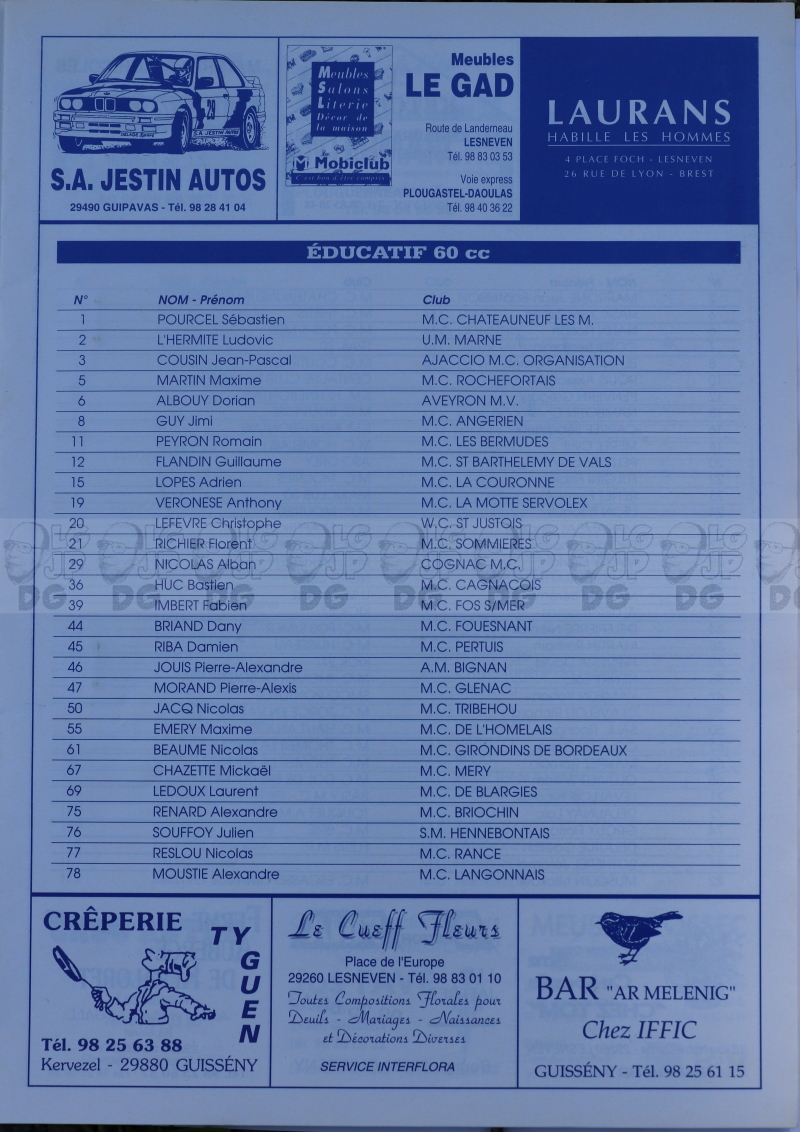 29
S.A. JESTIN AUTOS
S.A. JESTIN AUTOS
29490 GUIPAVAS - Tél. 98 28 41 04
Meubles
Salons
Literie
Décor de
la maison
Mobiclub
C'est bon d'être compris
Meubles
LE GAD
Route de Landerneau
LESNEVEN
Tél. 98 83 03 53
Voie express
PLOUGASTEL-DAOULAS
Tél. 98 40 36 22
LAURANS
HABILLE LES HOMMES
4 PLACE FOCH - LESNEVEN
26 RUE DE LYON - BREST
ÉDUCATIF 60 cc
N° NOM - Prénom Club
1 POURCEL Sébastien M.C. CHATEAUNEUF LES M.
2 L'HERMITE Ludovic U.M. MARNE
3 COUSIN Jean-Pascal AJACCIO M.C. ORGANISATION
5 MARTIN Maxime M.C. ROCHEFORTAIS
6 ALBOUY Dorian AVEYRON M.V.
8 GUY Jimi M.C. ANGERIEN
11 PEYRON Romain M.C. LES BERMUDES
12 FLANDIN Guillaume M.C. ST BARTHELEMY DE VALS
15 LOPES Adrien M.C. LA COURONNE
19 VERONESE Anthony M.C. LA MOTTE SERVOLEX
20 LEFEVRE Christophe W.C. ST JUSTOIS
21 RICHIER Florent M.C. SOMMIERES
29 NICOLAS Alban COGNAC M.C.
36 HUC Bastien M.C. CAGNAÇOIS
39 IMBERT Fabien M.C. FOS S/MER
44 BRIAND Dany M.C. FOUESNANT
45 RIBA Damien M.C. PERTUIS
46 JOUIS Pierre-Alexandre A.M. BIGNAN
47 MORAND Pierre-Alexis M.C. GLENAC
50 JACQ Nicolas M.C. TRIBEHOU
55 EMERY Maxime M.C. DE L'HOMELAIS
61 BEAUME Nicolas M.C. GIRONDINS DE BORDEAUX
67 CHAZETTE Mickaël M.C. MERY
69 LEDOUX Laurent M.C. DE BLARGIES
75 RENARD Alexandre M.C. BRIOCHIN
76 SOUFFOY Julien S.M. HENNEBONTAIS
77 RESLOU Nicolas M.C. RANCE
78 MOUSTIE Alexandre M.C. LANGONNAIS
CRÊPERIE
TY
GUEN
Tél. 98 25 63 88
Kervezel - 29880 GUISSÉNY
Le Cueff Fleurs
Place de l'Europe
29260 LESNEVEN - Tél. 98 83 01 10
Toutes Compositions Florales pour
Deuils - Mariages - Naissances
et Décorations Diverses
SERVICE INTERFLORA
BAR "AR MELENIG"
Chez IFFIC
GUISSÉNY - Tél. 98 25 61 15